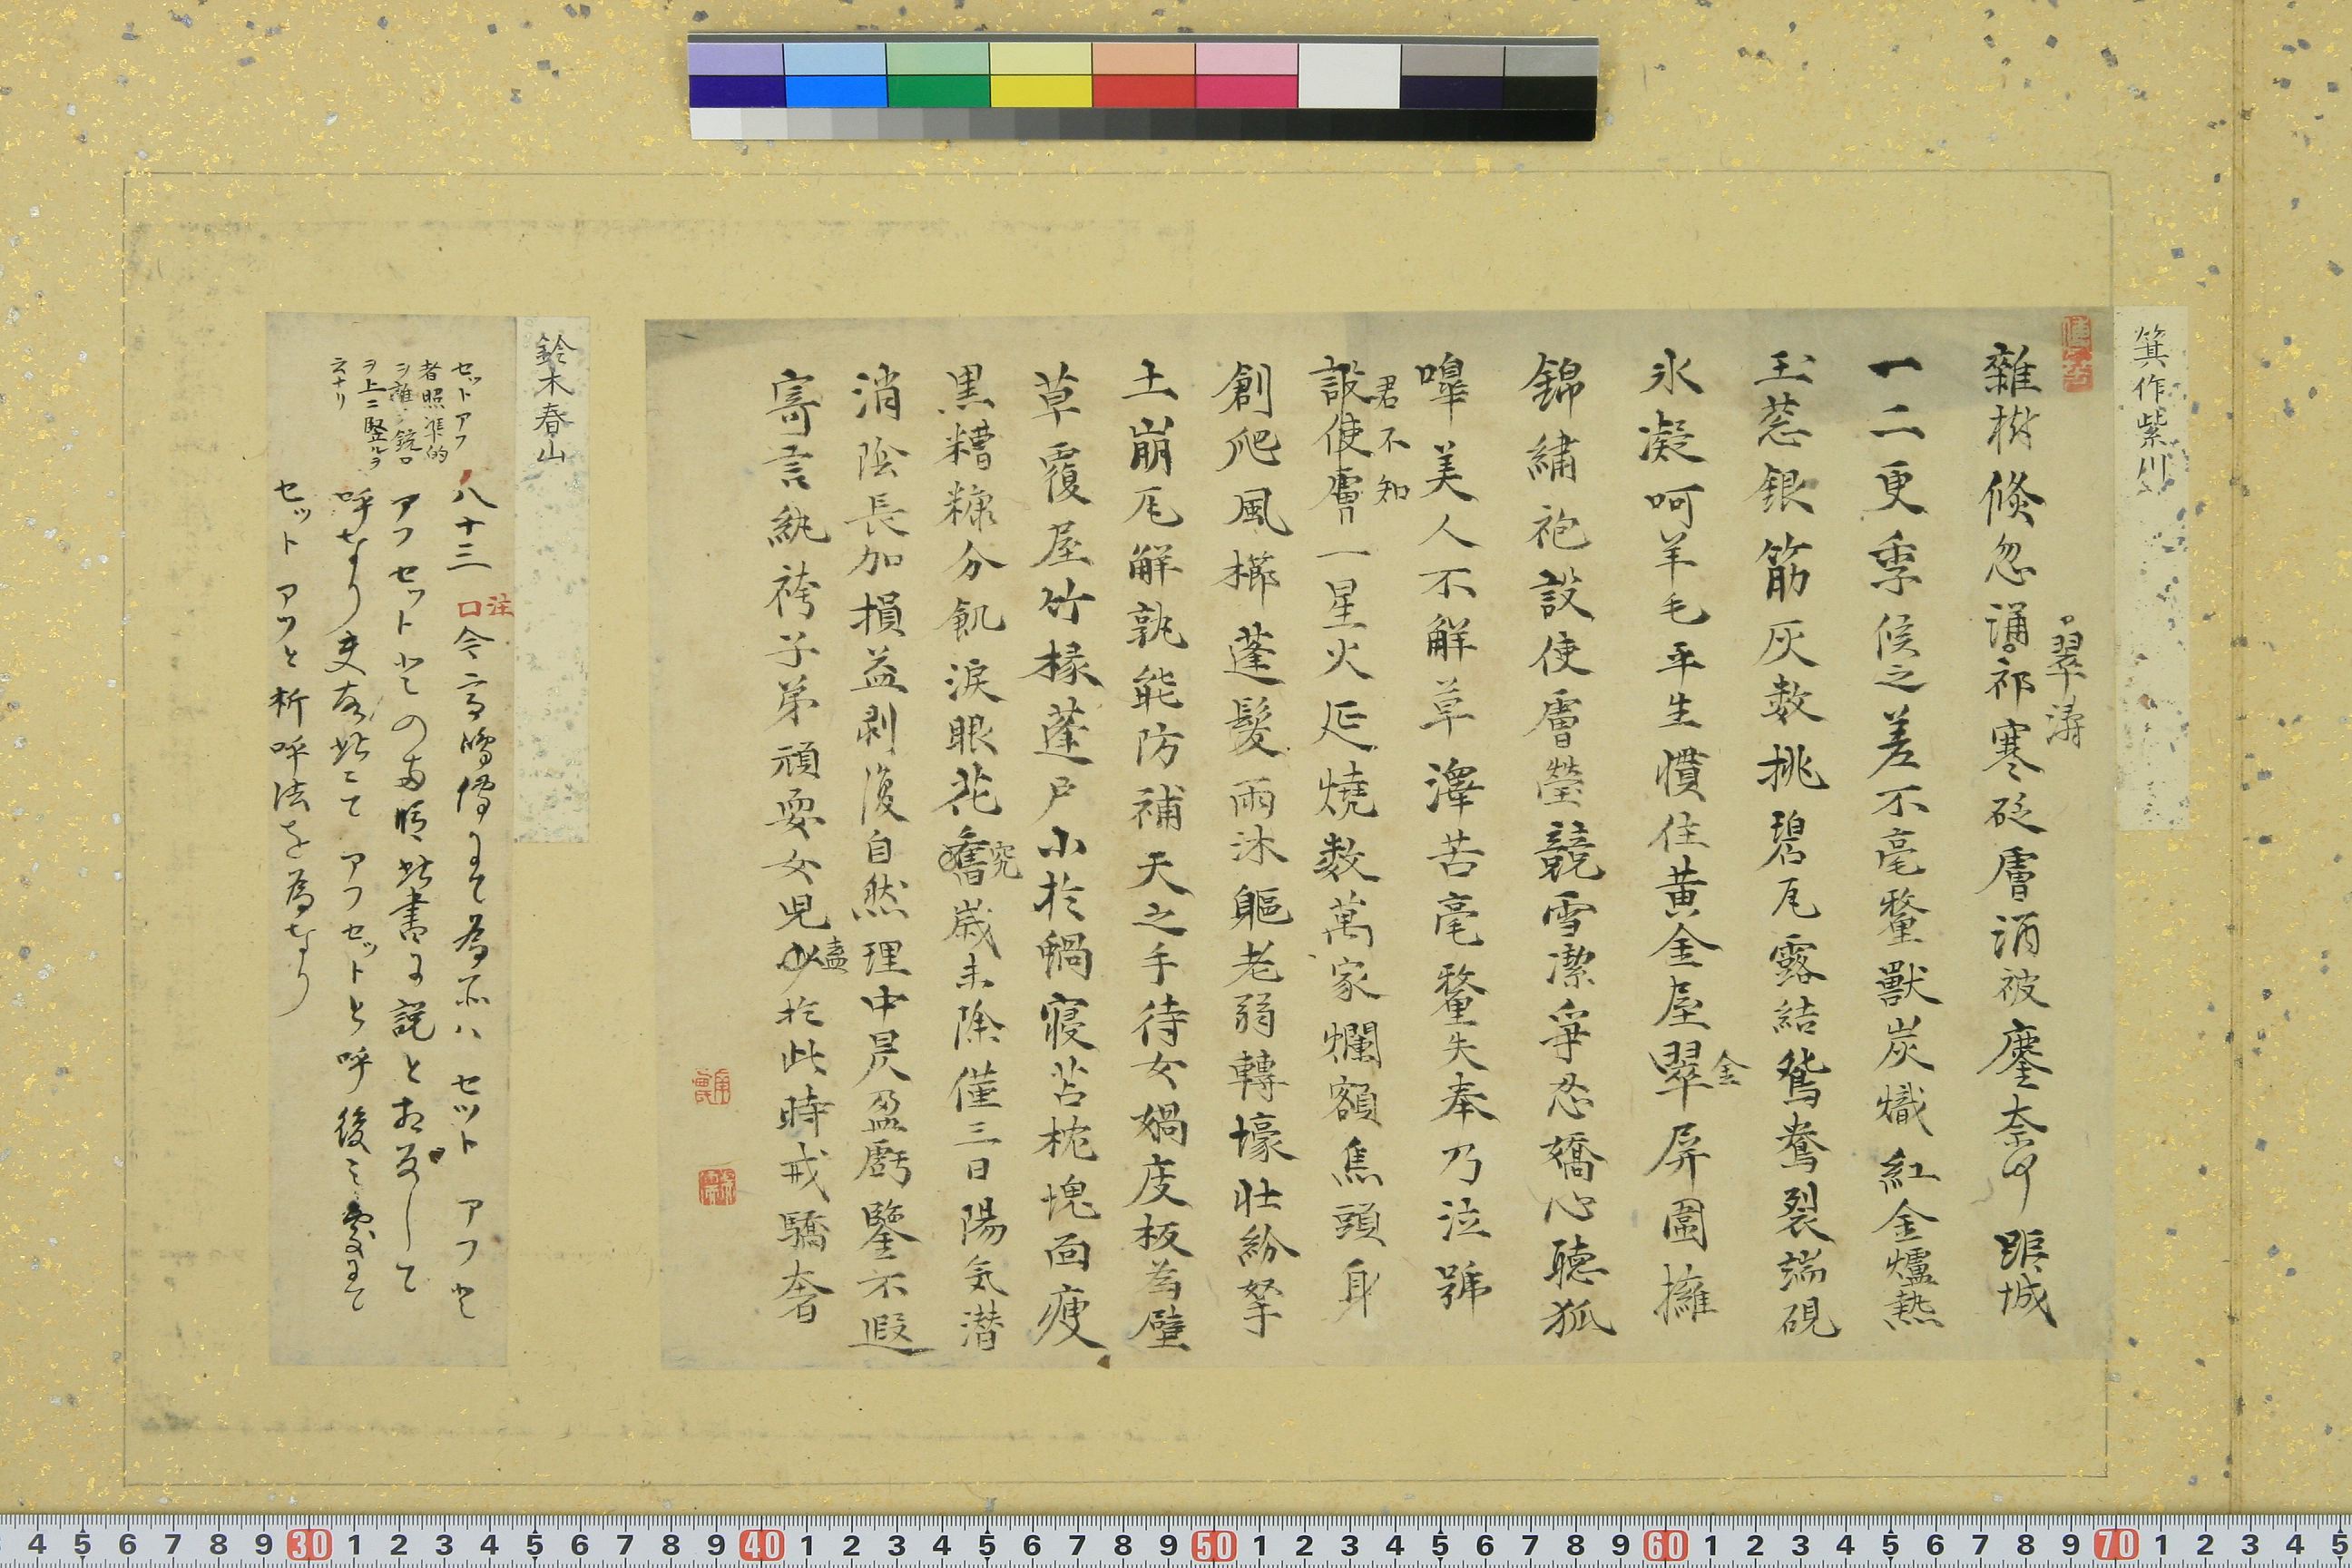 箕作紫川
翠濤
雜樹倏忽誦祁寒砭膚酒被鏖奈何 跟城
一二更季候之差不毫釐獸炭熾紅金爐熱
玉蕊銀筋灰数挑碧瓦露結鴛鴦裂端硯
氷凝呵羊毛平生慣住黄金屋翠屏圍擁
金
錦繡袍設使膚瑩競雪潔爭忍嬌心聴狐
嘷美人不解草澤苦毫釐失奉乃泣號
君不知
設使膚一星火延燒数萬家爛額焦頭身
創爬風櫛蓬髮雨沐軀老弱轉壕壮紛拏
土崩瓦解孰能防補天之手待女媧庋板為壁
草覆屋竹椽蓬戸小於蝸寢苫枕塊面瘦
黒糟糠分飢涙眼花舊歳未除僅三日陽気潜
究
消陰長加損益剥復自然理中昃盈虧鑒不遐
寄言紈袴子弟頑耍女児 於此時戒驕奢
盍
鈴木春山
セットアフ
者照準的
ヲ離シ銃口
ヲ上ニ竪ルヲ
云ナリ
八十三
注
口令
セット アフ
アフセット の両 此書 説と して
呼なり 此にて アフセットと呼 後
セット アフと 析呼法を為なり